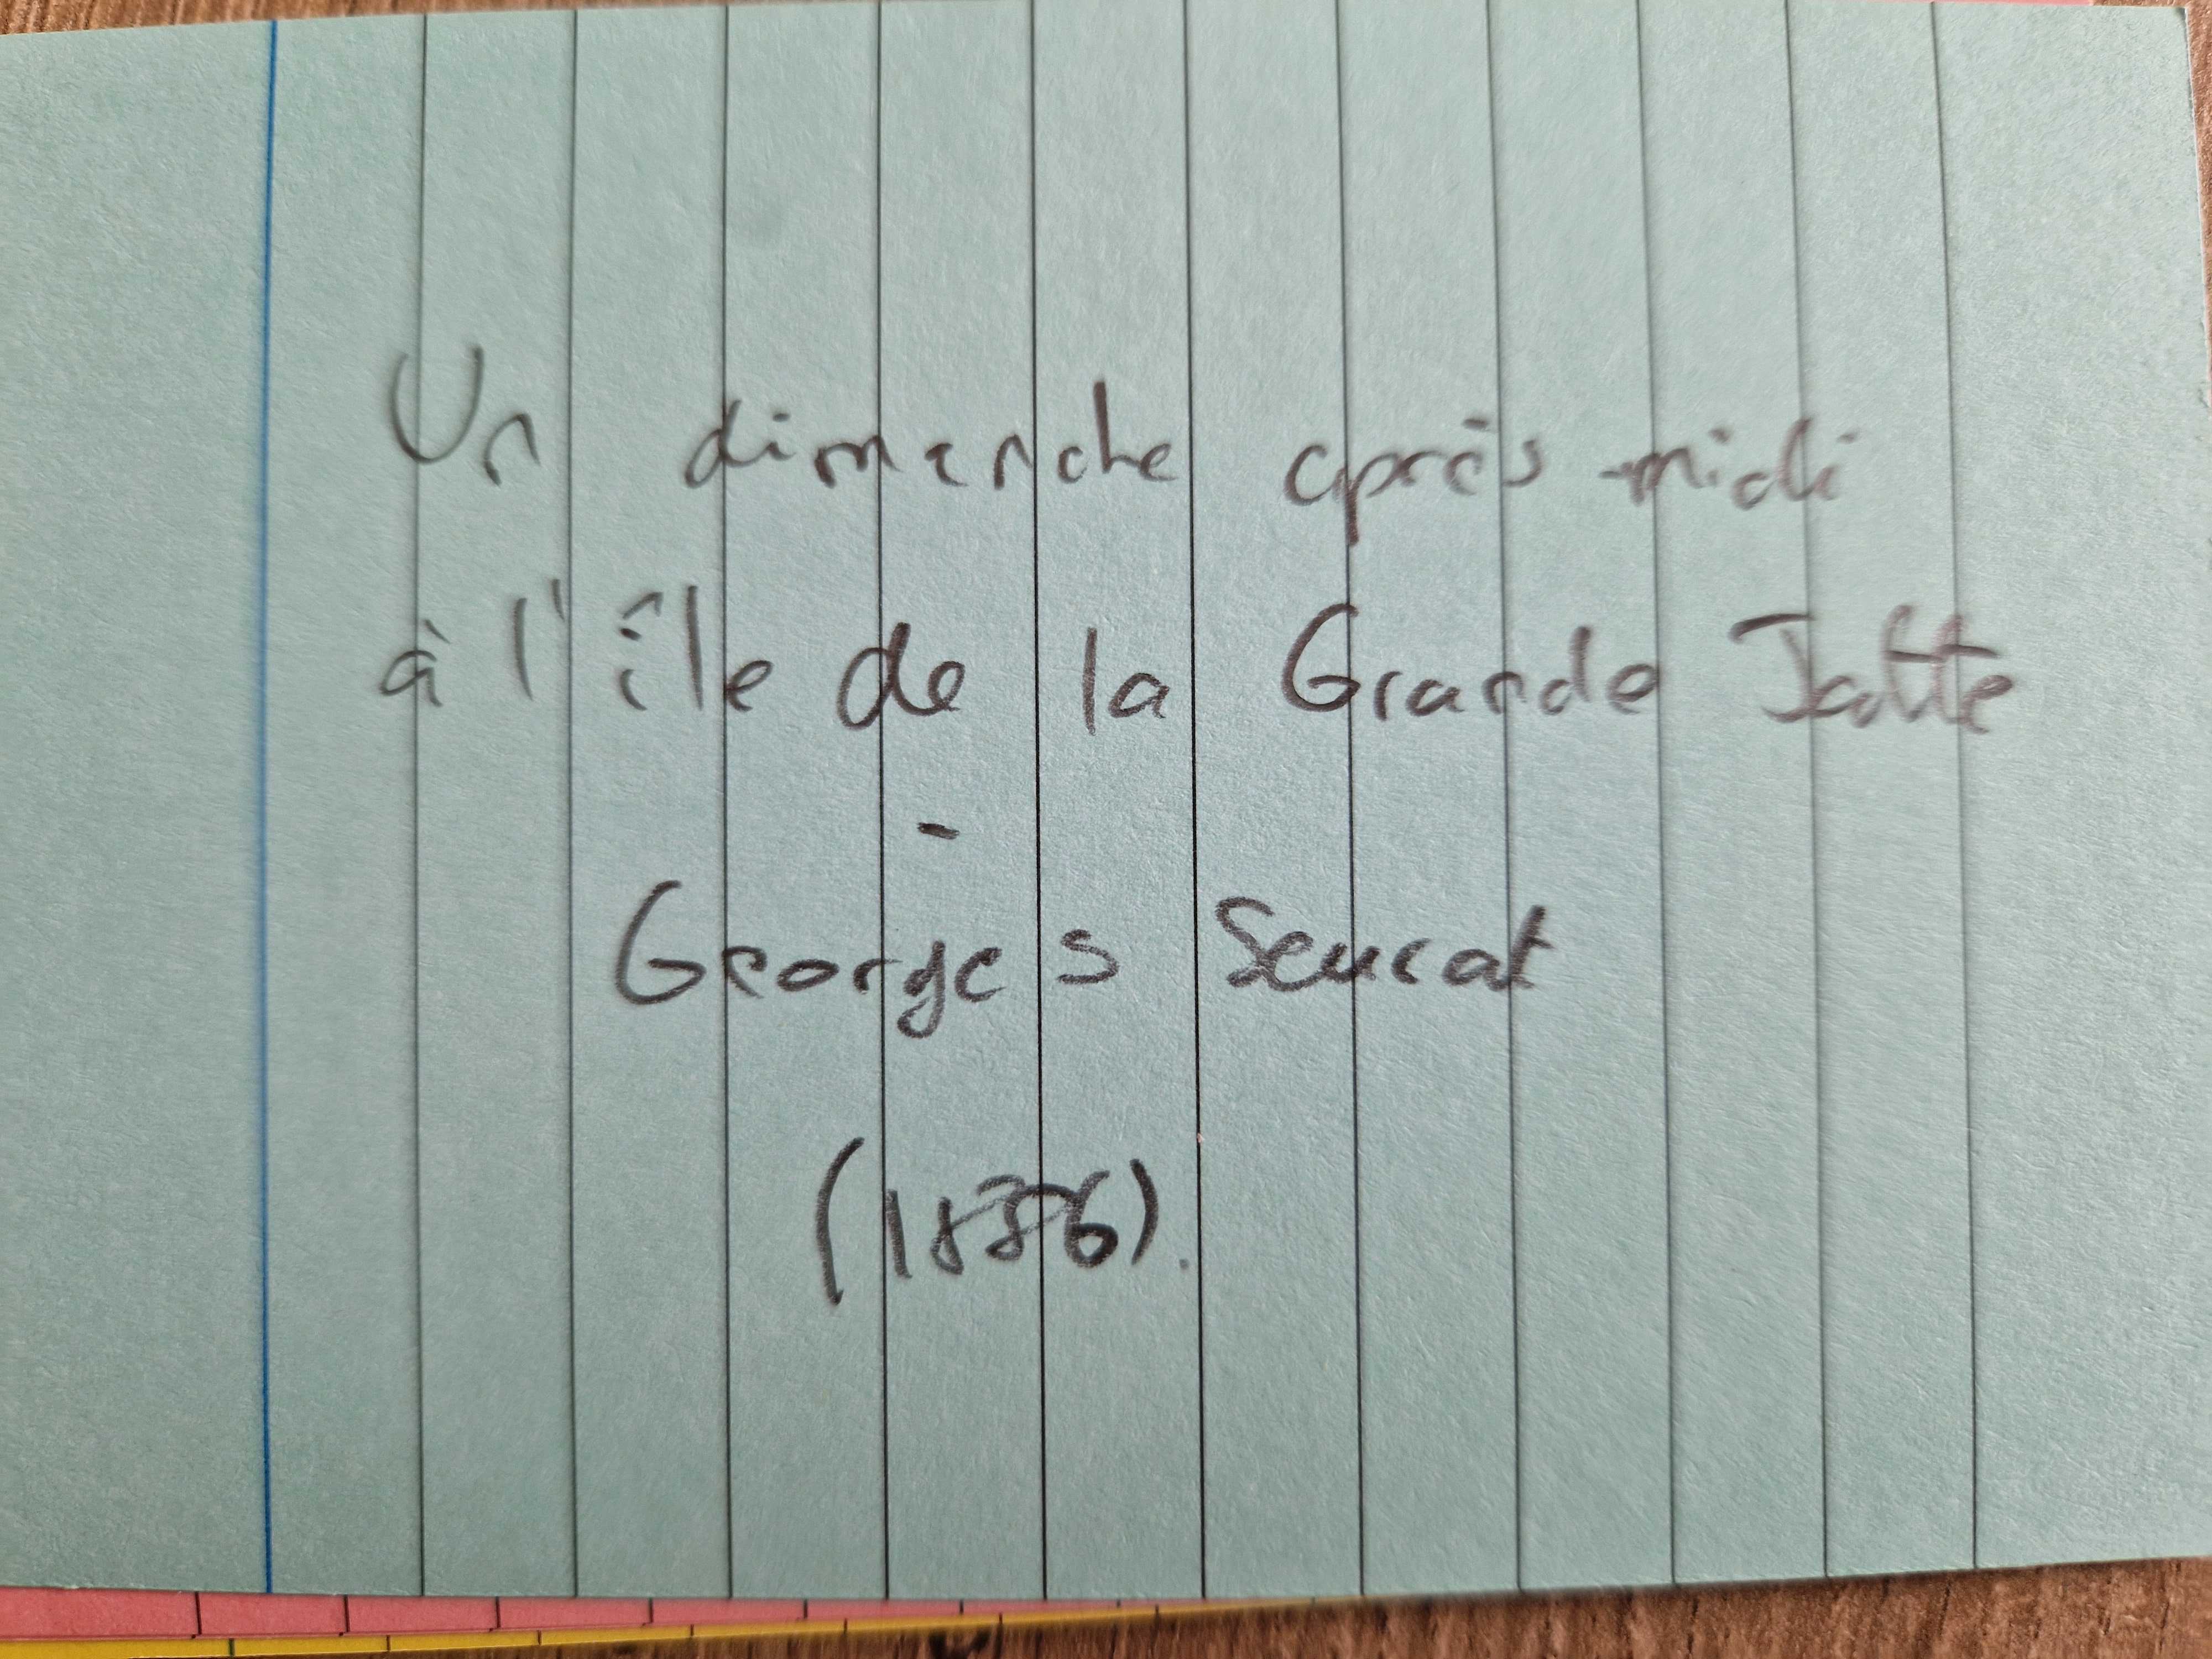 Un dimanche après-midi
à l'île de la Grande Jatte
-
Georges Seurat
(1886).